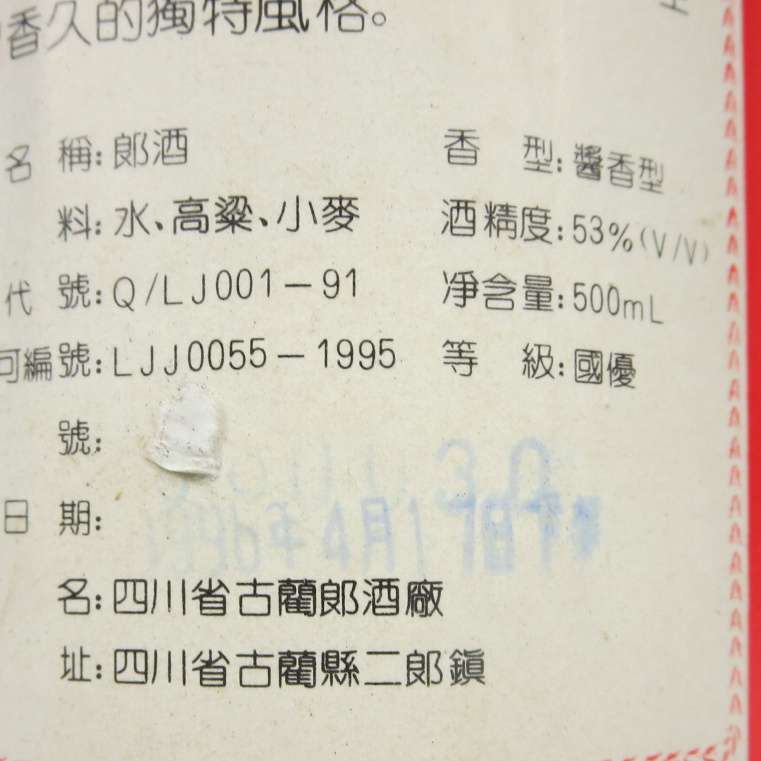 香久的獨特風格。
名 稱:郎酒 香 型:醬香型
料:水、高粱、小麥 酒精度:53%(V/V)
代 號:Q/LJ001-91 凈含量:500mL
可編號:LJJ0055-1995 等 級:國優
號:
日 期: 1996年4月17日
名:四川省古藺郎酒廠
址:四川省古藺縣二郎鎮